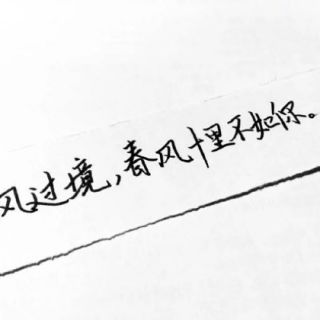 风过境，春风十里不如你。